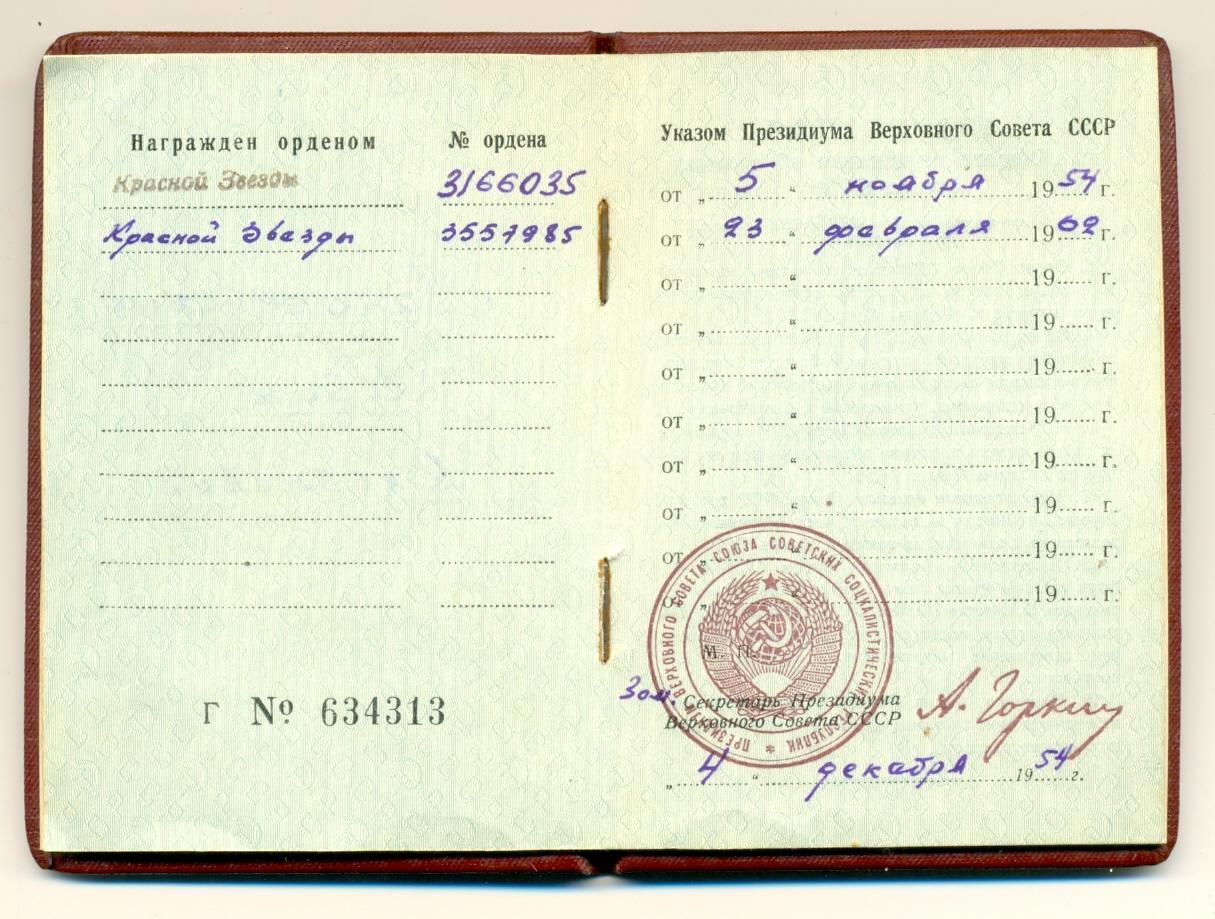 Награжден орденом
№ ордена
Красной Звезды
3166035
Красной Звезды
3557985
Г № 634313
Указом Президиума Верховного Совета СССР
от „ 5 “ ноября 1954 г.
от „ 23 “ февраля 1962 г.
от „ “ 19 г.
от „ “ 19 г.
от „ “ 19 г.
от „ “ 19 г.
от „ “ 19 г.
от „ “ 19 г.
от „ “ 19 г.
от „ “ 19 г.
ПРЕЗИДИУМ ВЕРХОВНОГО СОВЕТА СОЮЗА СОВЕТСКИХ СОЦИАЛИСТИЧЕСКИХ РЕСПУБЛИК
М. П.
Зам. Секретарь Президиума
Верховного Совета СССР
А. Горкин
„ 4 “ декабря 1954 г.